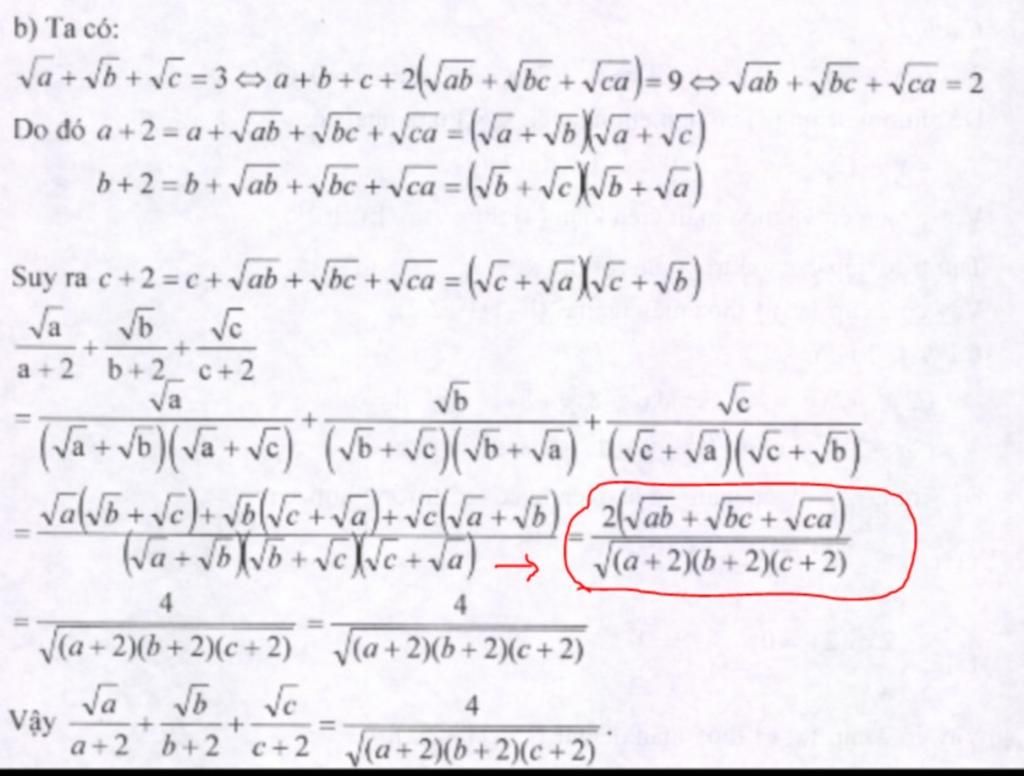 b) Ta có:
√a + √b + √c = 3 ⇔ a + b + c + 2(√ab + √bc + √ca) = 9 ⇔ √ab + √bc + √ca = 2
Do đó a + 2 = a + √ab + √bc + √ca = (√a + √b)(√a + √c)
b + 2 = b + √ab + √bc + √ca = (√b + √c)(√b + √a)
Suy ra c + 2 = c + √ab + √bc + √ca = (√c + √a)(√c + √b)
√a/(a + 2) + √b/(b + 2) + √c/(c + 2)
= √a/((√a + √b)(√a + √c)) + √b/((√b + √c)(√b + √a)) + √c/((√c + √a)(√c + √b))
= (√a(√b + √c) + √b(√c + √a) + √c(√a + √b))/((√a + √b)(√b + √c)(√c + √a)) → = 2(√ab + √bc + √ca)/√((a + 2)(b + 2)(c + 2))
= 4/√((a + 2)(b + 2)(c + 2)) = 4/√((a + 2)(b + 2)(c + 2))
Vậy √a/(a + 2) + √b/(b + 2) + √c/(c + 2) = 4/√((a + 2)(b + 2)(c + 2))